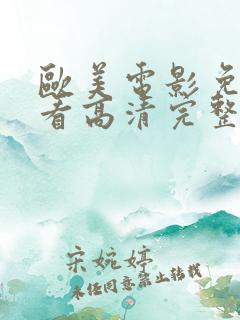 歐美電影免
看高清完整
宋婉婷
未经同意禁止转载